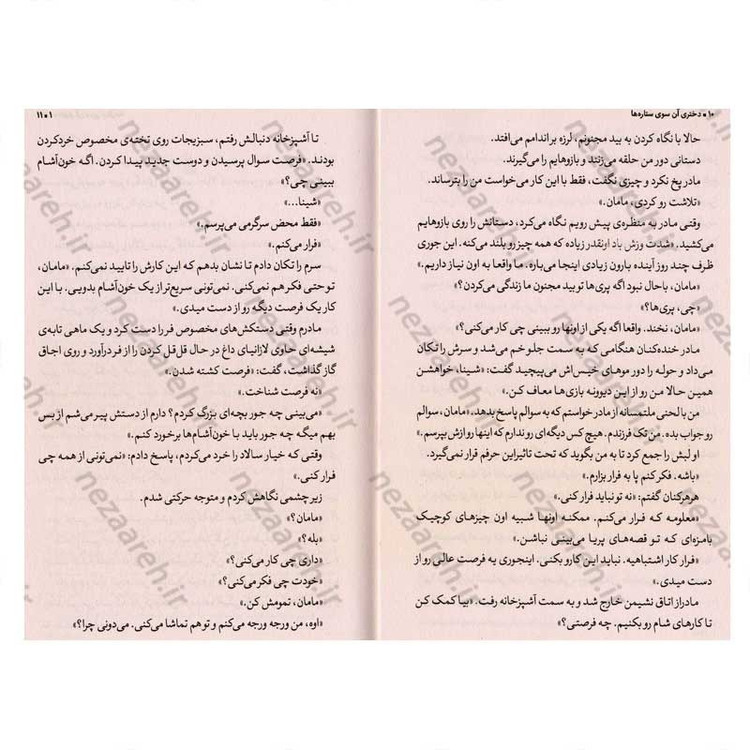 ۱۰ • دختری آن سوی ستاره‌ها
حالا با نگاه کردن به بید مجنونم، لرزه بر اندامم می‌افتد.
دستانی دور من حلقه می‌زنند و بازوهایم را می‌گیرند.
مادر پخ نکرد و چیزی نگفت، فقط با این کار می‌خواست من را بترساند.
«تلاشت رو کردی، مامان.»
وقتی مادر به منظره‌ی پیش رویم نگاه می‌کرد، دستانش را روی بازوهایم
می‌کشید. «شدت وزش باد اونقدر زیاده که همه چیز رو بلند می‌کنه. این جوری
ظرف چند روز آینده بارون زیادی اینجا می‌باره. ما واقعا به اون نیاز داریم.»
«مامان، باحال نبود اگه پری‌ها تو بید مجنون ما زندگی می‌کردن؟»
«چی، پری‌ها؟»
«مامان، نخند. واقعا اگه یکی از اونها رو ببینی چی کار می‌کنی؟»
مادر خنده‌کنان هنگامی که به سمت جلو خم می‌شد و سرش را تکان
می‌داد و حوله را دور موهای خیس‌اش می‌پیچید گفت: «شینا، خواهشن
همین حالا من رو از این دیوونه بازی‌ها معاف کن.»
من با لحنی ملتمسانه از مادر خواستم که به سوالم پاسخ بدهد. «مامان، سوالم
رو جواب بده. من تک فرزندم. هیچ کس دیگه‌ای رو ندارم که اینها رو ازش بپرسم.»
او لبش را جمع کرد تا به من بگوید که تحت تاثیر این حرفم قرار نمی‌گیرد.
«باشه. فکر کنم پا به فرار بزارم.»
هرهرکنان گفتم: «نه تو نباید فرار کنی.»
«معلومه که فرار می‌کنم. ممکنه اونها شبیه اون چیزهای کوچیک
بامزه‌ای که تو قصه‌های پریا می‌بینی نباشن.»
«فرار کار اشتباهیه. نباید این کار رو بکنی. اینجوری یه فرصت عالی رو از
دست میدی.»
مادر از اتاق نشیمن خارج شد و به سمت آشپزخانه رفت. «بیا کمک کن
تا کارهای شام رو بکنیم. چه فرصتی؟»
۱ • ۱۱
تا آشپزخانه دنبالش رفتم، سبزیجات روی تخته‌ی مخصوص خرد کردن
بودند. «فرصت سوال پرسیدن و دوست جدید پیدا کردن. اگه خون‌آشام
ببینی چی؟»
«شینا...»
«فقط محض سرگرمی می‌پرسم.»
«فرار می‌کنم.»
سرم را تکان دادم تا نشان بدهم که این کارش را تایید نمی‌کنم. «مامان،
تو حتی فکر هم نمی‌کنی. نمی‌تونی سریع‌تر از یک خون‌آشام بدویی. با این
کار یک فرصت دیگه رو از دست میدی.»
مادرم وقتی دستکش‌های مخصوص فر را دست کرد و یک ماهی تابه‌ی
شیشه‌ای حاوی لازانیای داغ در حال قل‌قل کردن را از فر درآورد و روی اجاق
گاز گذاشت، گفت: «فرصت کشته شدن.»
«نه فرصت شناخت.»
«می‌بینی چه جور بچه‌ای بزرگ کردم؟ دارم از دستش پیر می‌شم از بس
بهم میگه چه جور باید با خون‌آشام‌ها برخورد کنم.»
وقتی که خیار سالاد را خرد می‌کردم، پاسخ دادم: «نمی‌تونی از همه چی
فرار کنی.»
زیر چشمی نگاهش کردم و متوجه حرکتی شدم.
«مامان؟»
«بله؟»
«داری چی کار می‌کنی؟»
«خودت چی فکر می‌کنی؟»
«مامان، تمومش کن.»
«اوه، من ورجه ورجه می‌کنم و تو هم تماشا می‌کنی. می‌دونی چرا؟»
nezaareh.ir